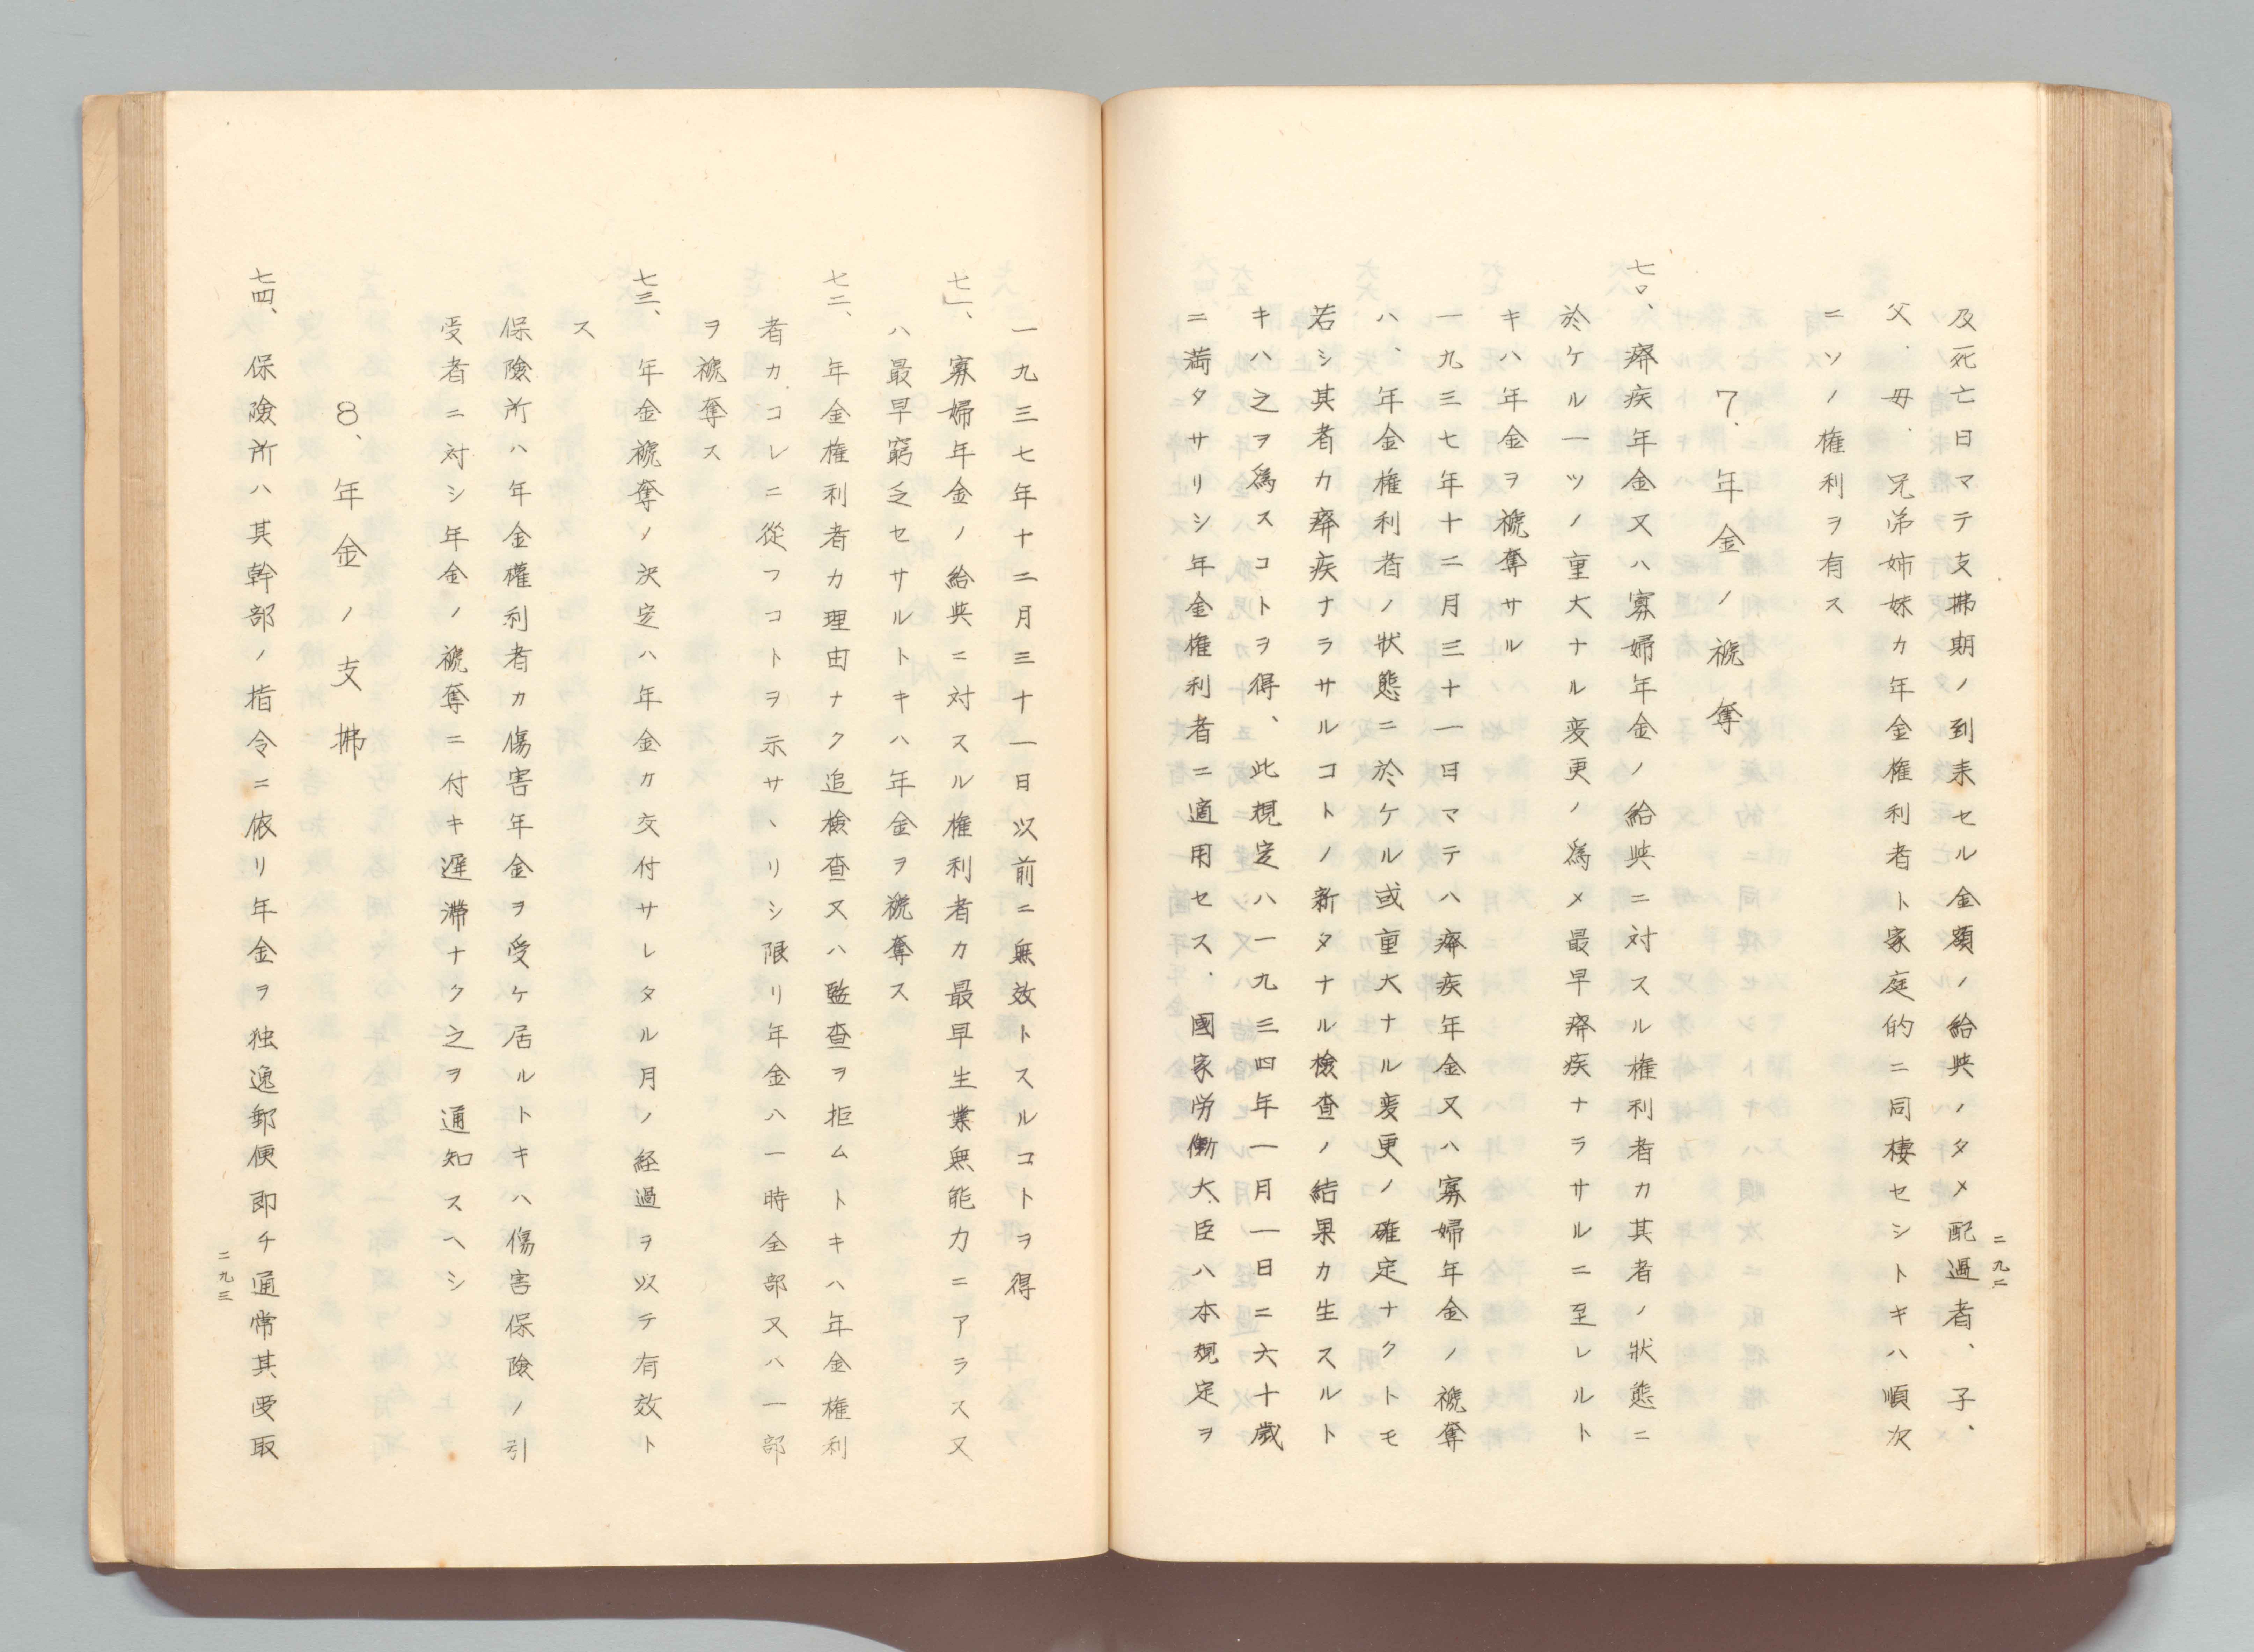 及死亡日マテ支拂期ノ到来セル金額ノ給與ノタメ配遇者、子、
父．母．兄弟姉妹カ年金権利者ト家庭的ニ同棲セシトキハ順次
ニソノ権利ヲ有ス
7．年金ノ褫奪
七〇、癈疾年金又ハ寡婦年金ノ給與ニ対スル権利者カ其者ノ状態ニ
於ケル一ツノ重大ナル変更ノ為メ最早癈疾ナラサルニ至レルト
キハ年金ヲ褫奪サル
一九三七年十二月三十一日マテハ癈疾年金又ハ寡婦年金ノ褫奪
ハ、年金権利者ノ状態ニ於ケル或重大ナル変更ノ確定ナクトモ
若シ其者カ癈疾ナラサルコトノ新タナル檢査ノ結果カ生スルト
キハ之ヲ為スコトヲ得、此規定ハ一九三四年一月一日ニ六十歳
ニ満タサリシ年金権利者ニ適用セス．國家労働大臣ハ本規定ヲ
二九二
一九三七年十二月三十一日以前ニ無效トスルコトヲ得
七一、寡婦年金ノ給與ニ対スル権利者カ最早生業無能力ニアラス又
ハ最早窮乏セサルトキハ年金ヲ褫奪ス
七二、年金権利者カ理由ナク追檢査又ハ監査ヲ拒ムトキハ年金権利
者カコレニ從フコトヲ示サヽリシ限リ年金ハ一時全部又ハ一部
ヲ褫奪ス
七三、年金褫奪ノ決定ハ年金カ交付サレタル月ノ経過ヲ以テ有效ト
ス
保險所ハ年金權利者カ傷害年金ヲ受ケ居ルトキハ傷害保險ノ引
受者ニ対シ年金ノ褫奪ニ付キ遅滞ナク之ヲ通知スヘシ
8、年金ノ支拂
七四、保險所ハ其幹部ノ指令ニ依リ年金ヲ独逸郵便即チ通常其受取
二九三